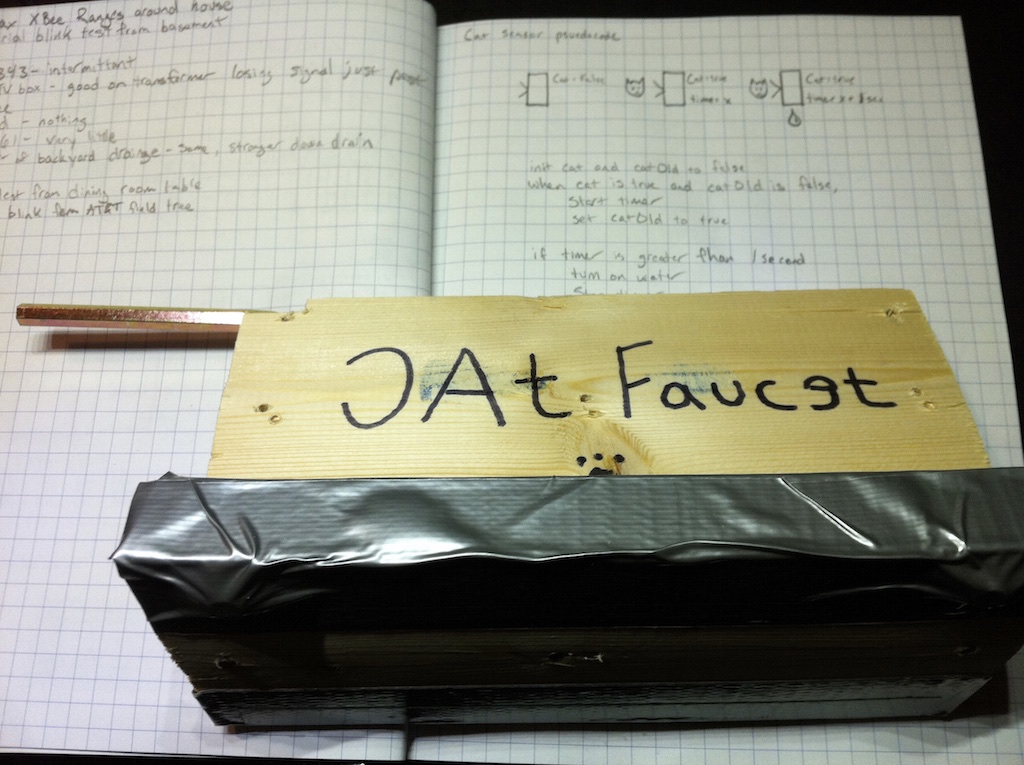 XBee Ranges around house
blink test from basement
intermittant
box - good on transformer losing signal just past
nothing
very little
backyard drainge - same, stronger down drain
from dining room table
blink form AT&T field true
Cat sensor psuedocode
Cat = false
Cat = true
timer x
Cat = true
init cat and catOld to false
when cat is true and catOld is false,
start timer
set catOld to true
if timer is greater than 1 second
turn on water
JAt Faucet